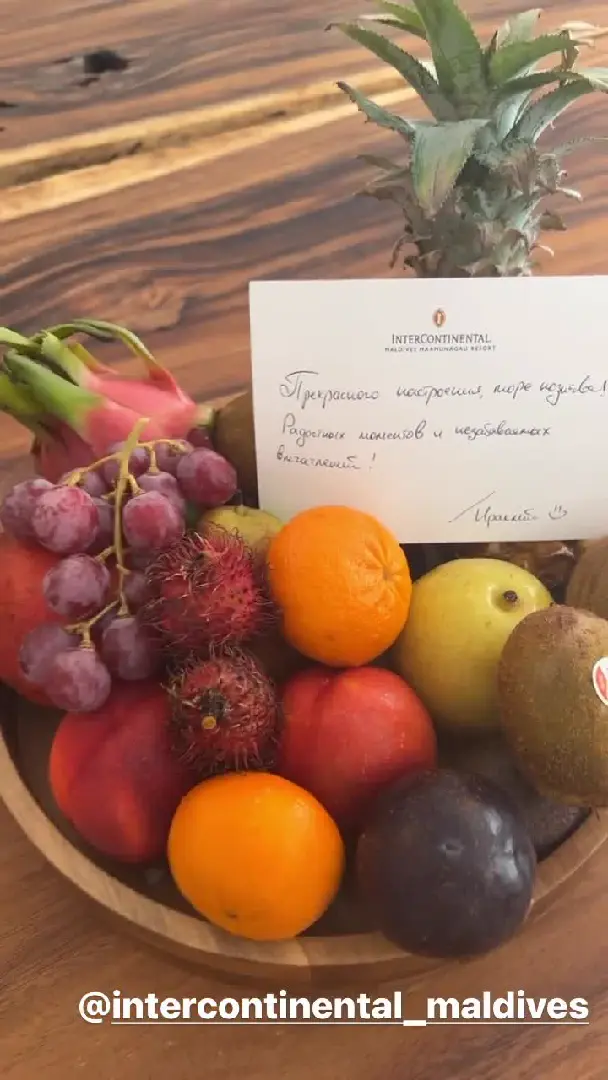 INTERCONTINENTAL
MALDIVES MAAMUNAGAU RESORT
Прекрасного настроения, море позитива!
Радостных моментов и незабываемых
впечатлений!
@intercontinental_maldives